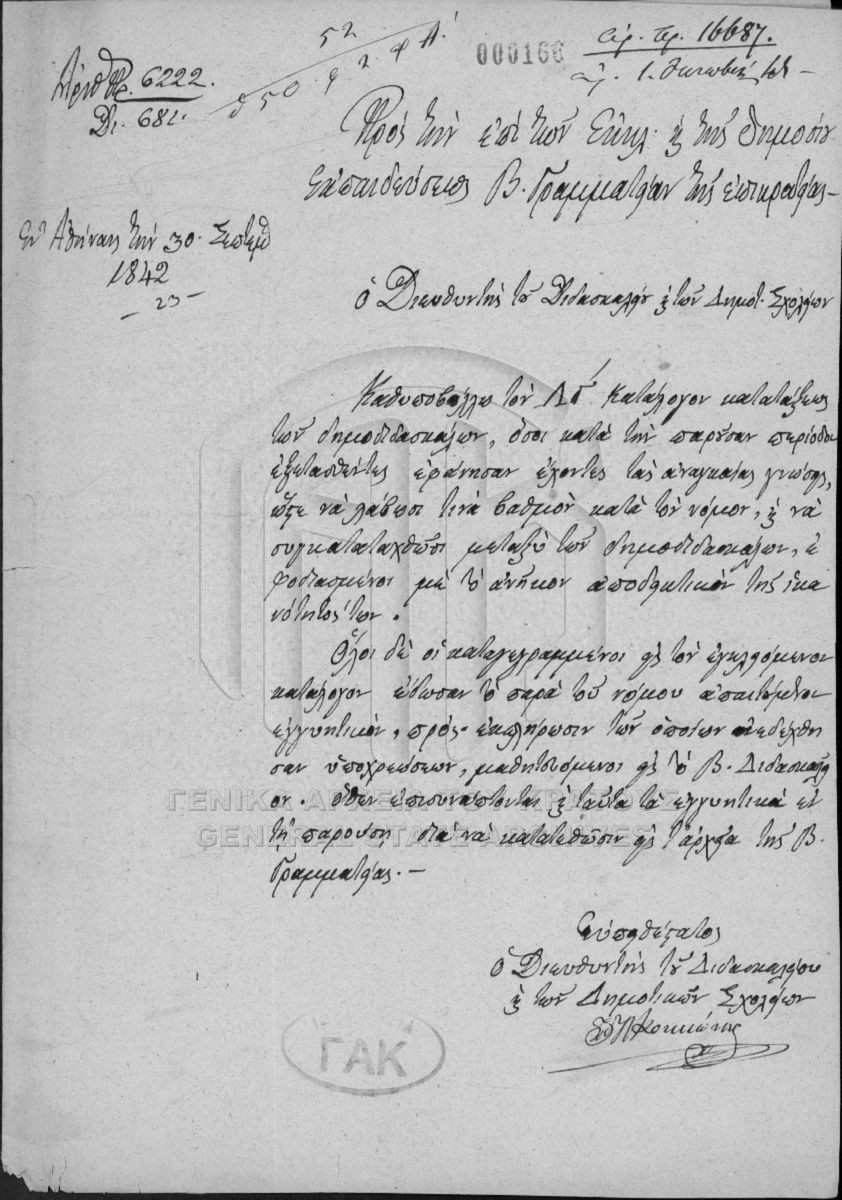 52
Ἀριθ. Πρ. 6222.
Δι. 681.
000166
ἀρ. πρ. 16687.
1. Ὀκτωβρ
Πρὸς τὴν ἐπὶ τῶν Ἐκκλ. ϗ τῆς δημοσίου
Ἐκπαιδεύσεως Β. Γραμματείαν τῆς ἐπικρατείας —
Ἐν Ἀθήναις τὴν 30. Σεπτεμβ
1842
— 23 —
ὁ Διευθυντὴς τοῦ Διδασκαλείου ϗ τῶν Δημοτ. Σχολείων
Καθυποβάλλω τὸν ΛΣʹ Κατάλογον κατατάξεως
τῶν δημοδιδασκάλων, ὅσοι κατὰ τὴν παροῦσαν περίοδον
ἐξετασθέντες ἐφάνησαν ἔχοντες τὰς ἀναγκαίας γνώσεις,
ὥστε νὰ λάβωσι τινὰ βαθμὸν κατὰ τὸν νόμον, ϗ νὰ
συγκαταταχθῶσι μεταξὺ τῶν δημοδιδασκάλων, ἐ
φοδιασμένοι μὲ τὸ ἀνῆκον ἀποδεικτικὸν τῆς ἱκα
νότητός των.
Ὅλοι δὲ οἱ καταγεγραμμένοι εἰς τὸν ἐγκλειόμενον
κατάλογον ἔδωσαν τὸ παρὰ τοῦ νόμου ἀπαιτούμενον
ἐγγυητικὸν, πρὸς ἐκπλήρωσιν τῶν ὁποίων ἀνεδέχθη
σαν ὑποχρεώσεων, μαθητευόμενοι εἰς τὸ Β. Διδασκαλεῖ
ον. ὅθεν ἐπισυνάπτονται ϗ ταῦτα τὰ ἐγγυητικὰ ἐν
τῇ παρούσῃ διὰ νὰ κατατεθῶσιν εἰς τ' ἀρχεῖα τῆς Β.
Γραμματείας. —
ΓΕΝΙΚΑ ΑΡΧΕΙΑ ΤΟΥ ΚΡΑΤΟΥΣ
GENERAL STATE ARCHIVES
Εὐπειθέστατος
ὁ Διευθυντὴς τοῦ Διδασκαλείου
ϗ τῶν Δημοτικῶν Σχολείων
Κοκκώνης
ΓΑΚ